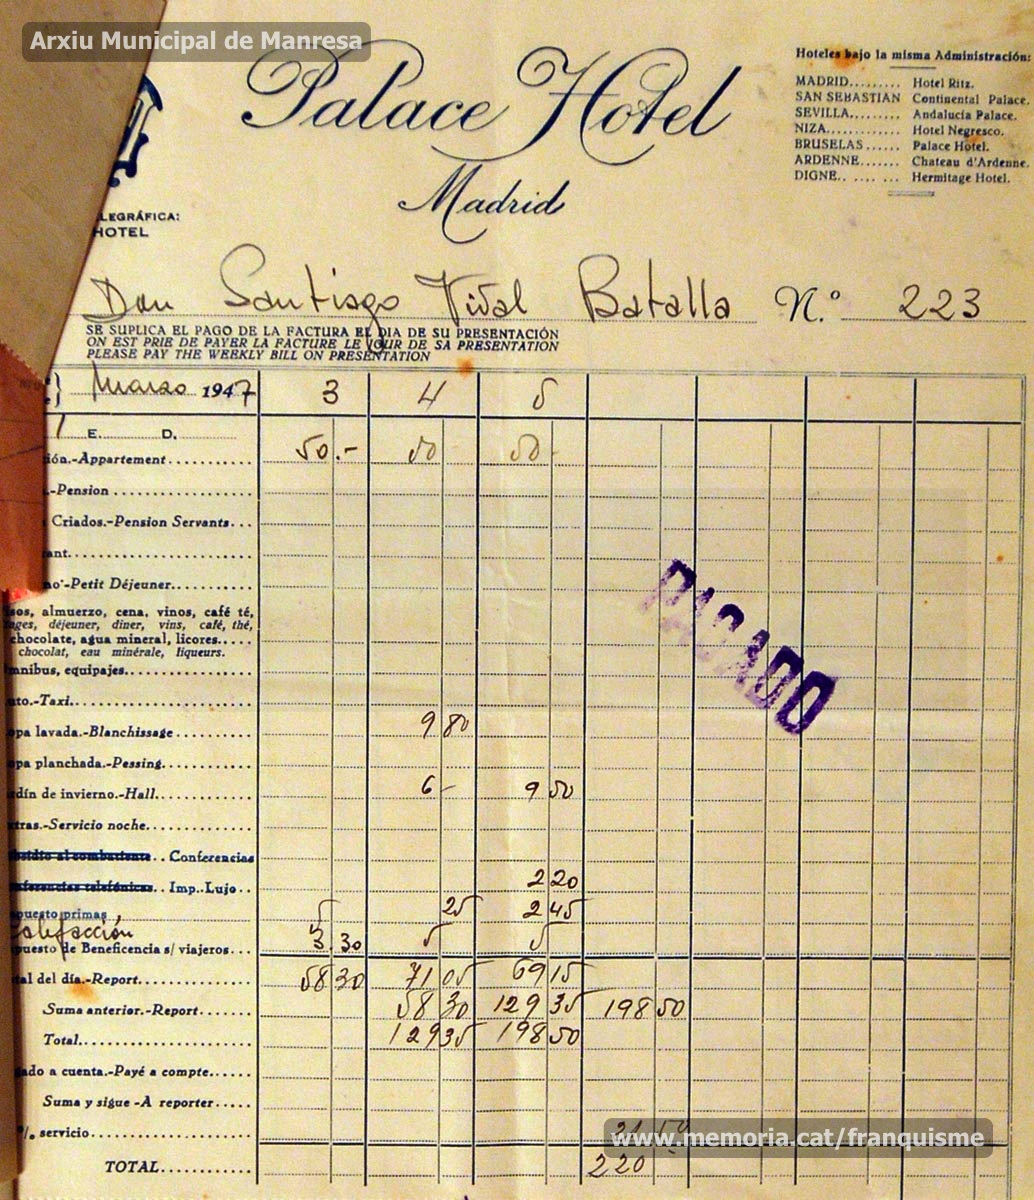 Arxiu Municipal de Manresa
Palace Hotel
Madrid
Hoteles bajo la misma Administración:
MADRID......... Hotel Ritz.
SAN SEBASTIÁN Continental Palace.
SEVILLA........ Andalucía Palace.
NIZA............ Hotel Negresco.
BRUSELAS...... Palace Hotel.
ARDENNE....... Chateau d'Ardenne.
DIGNE.. .... ... Hermitage Hotel.
LEGRÁFICA:
HOTEL
Don Santiago Vidal Batalla N.º 223
SE SUPLICA EL PAGO DE LA FACTURA EL DIA DE SU PRESENTACIÓN
ON EST PRIE DE PAYER LA FACTURE LE JOUR DE SA PRESENTATION
PLEASE PAY THE WEEKLY BILL ON PRESENTATION
Marzo 1947 3 4 5
E. D.
ión.-Appartement 50.- 50- 50-
.-Pension
Criados.-Pension Servants...
ant.
no-Petit Déjeuner
sos, almuerzo, cena, vinos, café té,
ages, déjeuner, diner, vins, café, thé,
chocolate, agua mineral, licores.....
chocolat, eau minérale, liqueurs.
mnibus, equipajes
uto.-Taxi
opa lavada.-Blanchissage 9 80
opa planchada.-Pessing
rdín de invierno.-Hall 6- 9 50
tras.-Servicio noche
PAGADO
Conferencias
Imp. Lujo.. 2 20
puesto primas 5 25 2 45
Calefacción
puesto de Beneficencia s/ viajeros... 3.30 5 5
tal del día.-Report 58 30 71 05 69 15
Suma anterior.-Report 58 30 129 35 198 50
Total 129 35 198 50
ado a cuenta.-Payé a compte
Suma y sigue -A reporter
% servicio 21 50
TOTAL 220
www.memoria.cat/franquisme